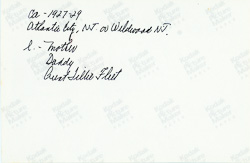 Ca - 1927-29
Atlantic City, N.J. or Wildwood N.J.
L. - Mother
Daddy
Aunt Lillie Fleet